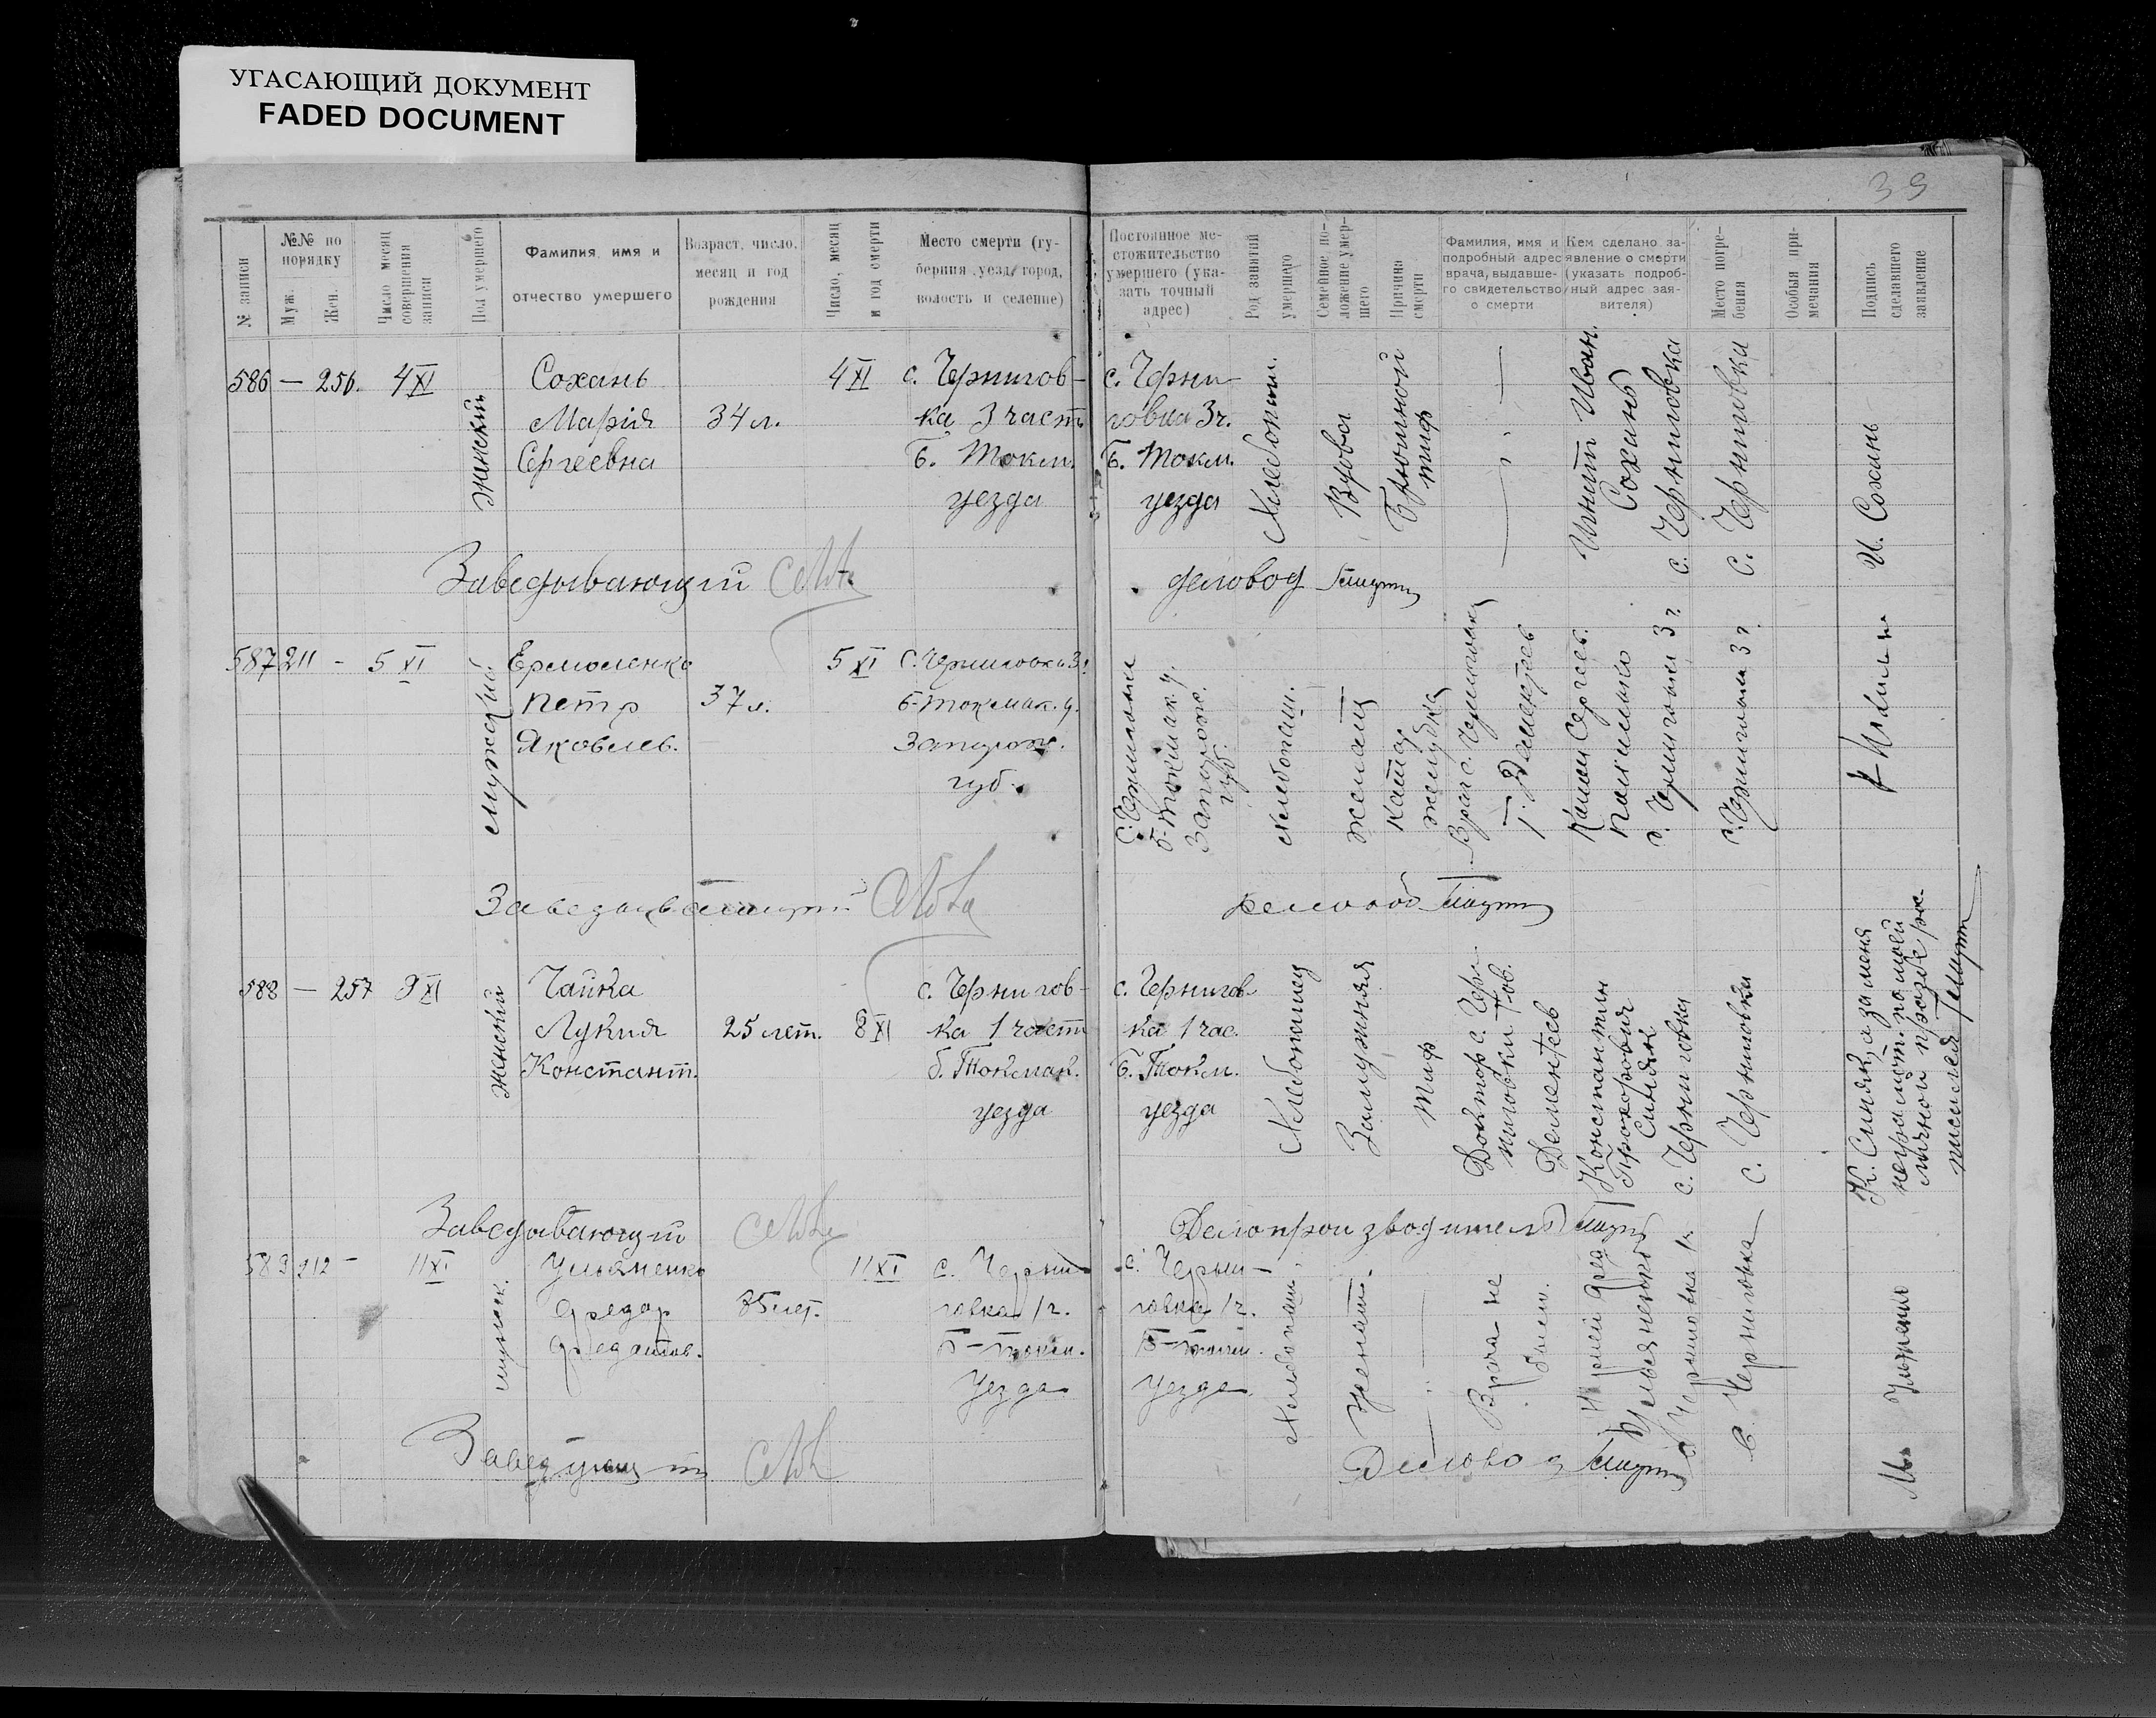 УГАСАЮЩИЙ ДОКУМЕНТ
FADED DOCUMENT
39
№ записи
№№ по порядку
Муж.
Жен.
Число месяц совершения записи
Пол умершего
Фамилия, имя и
отчество умершего
Возраст, число,
месяц и год
рождения
Число, месяц
и год смерти
Место смерти (гу-
берния, уезд, город,
волость и селение)
Постоянное ме-
стожительство
умершего (ука-
зать точный
адрес)
Род занятий
умершего
Семейное по-
ложение умер-
шего
Причина
смерти
Фамилия, имя и
подробный адрес
врача, выдавше-
го свидетельство
о смерти
Кем сделано за-
явление о смерти
(указать подроб-
ный адрес зая-
вителя)
Место погре-
бения
Особыя при-
мечания
Подпись
сделавшего
заявление
586 — 256. 4 XI
женский
Сохань
Марія
Сергеевна
34 л.
4 XI
с. Чернигов-
ка 3 част
Б. Токм.
уезда
с. Черни-
говка 3 ч.
Б. Токм.
уезда
Хлебопаш.
Вдова
Брюшной
тиф
—
Игнат Иван.
Сохань
с. Черниговка
с. Черниговка
И. Сохань
Заведывающий
деловод
587 211 - 5 XI
мужский
Ермоленко
Петр
Яковлев.
37 л.
5 XI
с. Черниговка 3 ч.
Б-Токмак. у.
Запорож.
губ.
с. Черниговка
Б-Токмак. у.
Запорож.
губ.
Хлебопаш.
женат
катар
желудка
Врач с. Черниговки
Т. Дементьев
Сергеев.
с. Черниговки 3 ч.
с. Черниговка 3 ч.
Заведывающий
деловод
588 — 257 9 XI
женский
Чайка
Лукия
Констант.
25 лет.
8 XI
с. Чернигов-
ка 1 част
б. Токмак.
уезда
с. Чернигов-
ка 1 час.
Б. Токм.
уезда
Хлебопашец
Замужняя
Тиф
Доктор с. Чер-
ниговки Т-ов.
Дементьев
Константин
Прокорович
Синяк
с. Черниговка
с. Черниговка
К. Синяк, а за меня
неграмот. по моей
личной прозьбе рас-
писался
Заведывающий
Делопроизводитель
589 212 - 11 XI
мужск.
Ульяненко
Федор
35 лет.
11 XI
с. Черни-
говка 1 ч.
Б-Токм.
уезда
с. Черни-
говка 1 ч.
Б-Токм.
уезда
Хлебопаш.
женат.
—
Врача не
было.
Ульяненко
с. Черниговка 1 ч.
с. Черниговка
Заведующий
Деловод